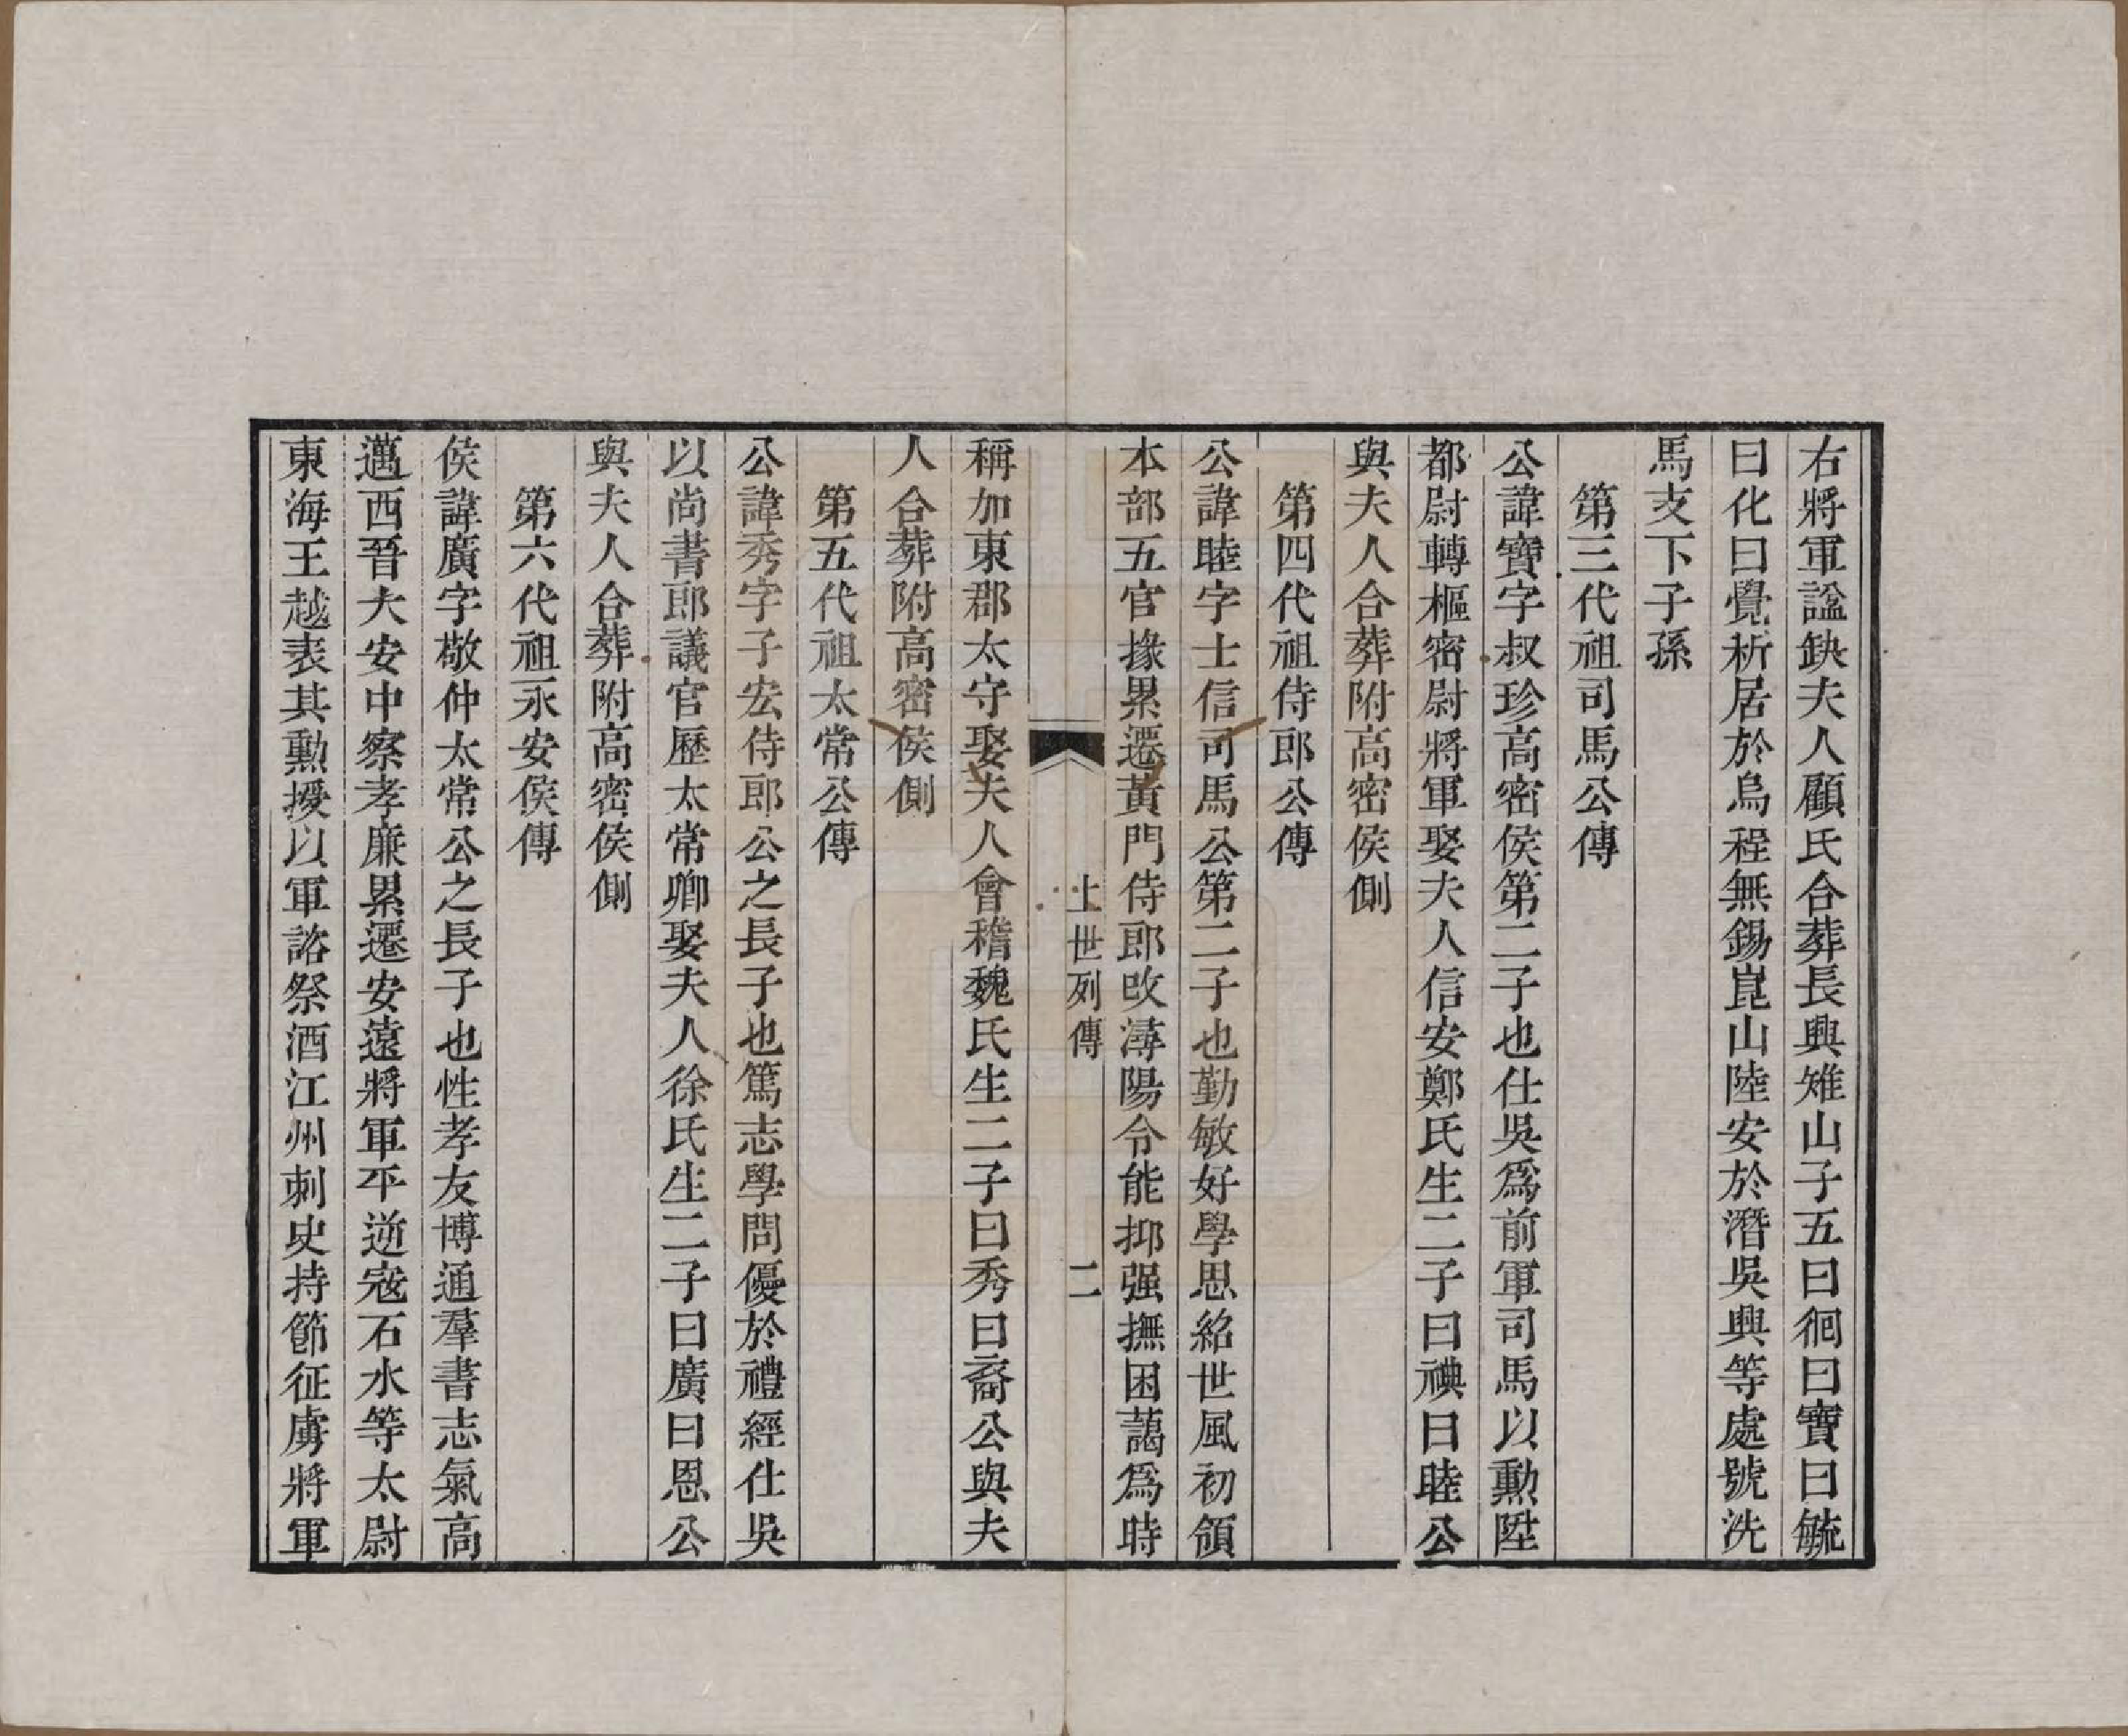 右將軍諡缺夫人顧氏合葬長興雉山子五曰徊曰寶曰毓
曰化曰覺析居於烏程無錫崑山陸安於潛吳興等處號洗
馬支下子孫
第三代祖司馬公傳
公諱寶字叔珍高密侯第二子也仕吳爲前軍司馬以勲陞
都尉轉樞密尉將軍娶夫人信安鄭氏生二子曰䄎曰睦公
與夫人合葬附高密侯側
第四代祖侍郎公傳
公諱睦字士信司馬公第二子也勤敏好學思紹世風初領
本部五官掾累遷黃門侍郎改潯陽令能抑强撫困藹爲時
上世列傳 二
稱加東郡太守娶夫人會稽魏氏生二子曰秀曰裔公與夫
人合葬附高密侯側
第五代祖太常公傳
公諱秀字子宏侍郎公之長子也篤志學問優於禮經仕吳
以尚書郎議官歷太常卿娶夫人徐氏生二子曰廣曰恩公
與夫人合葬附高密侯側
第六代祖永安侯傳
侯諱廣字敬仲太常公之長子也性孝友博通羣書志氣高
邁西晉大安中察孝廉累遷安遠將軍平逆寇石水等太尉
東海王越表其勲授以軍諮祭酒江州刺史持節征虜將軍